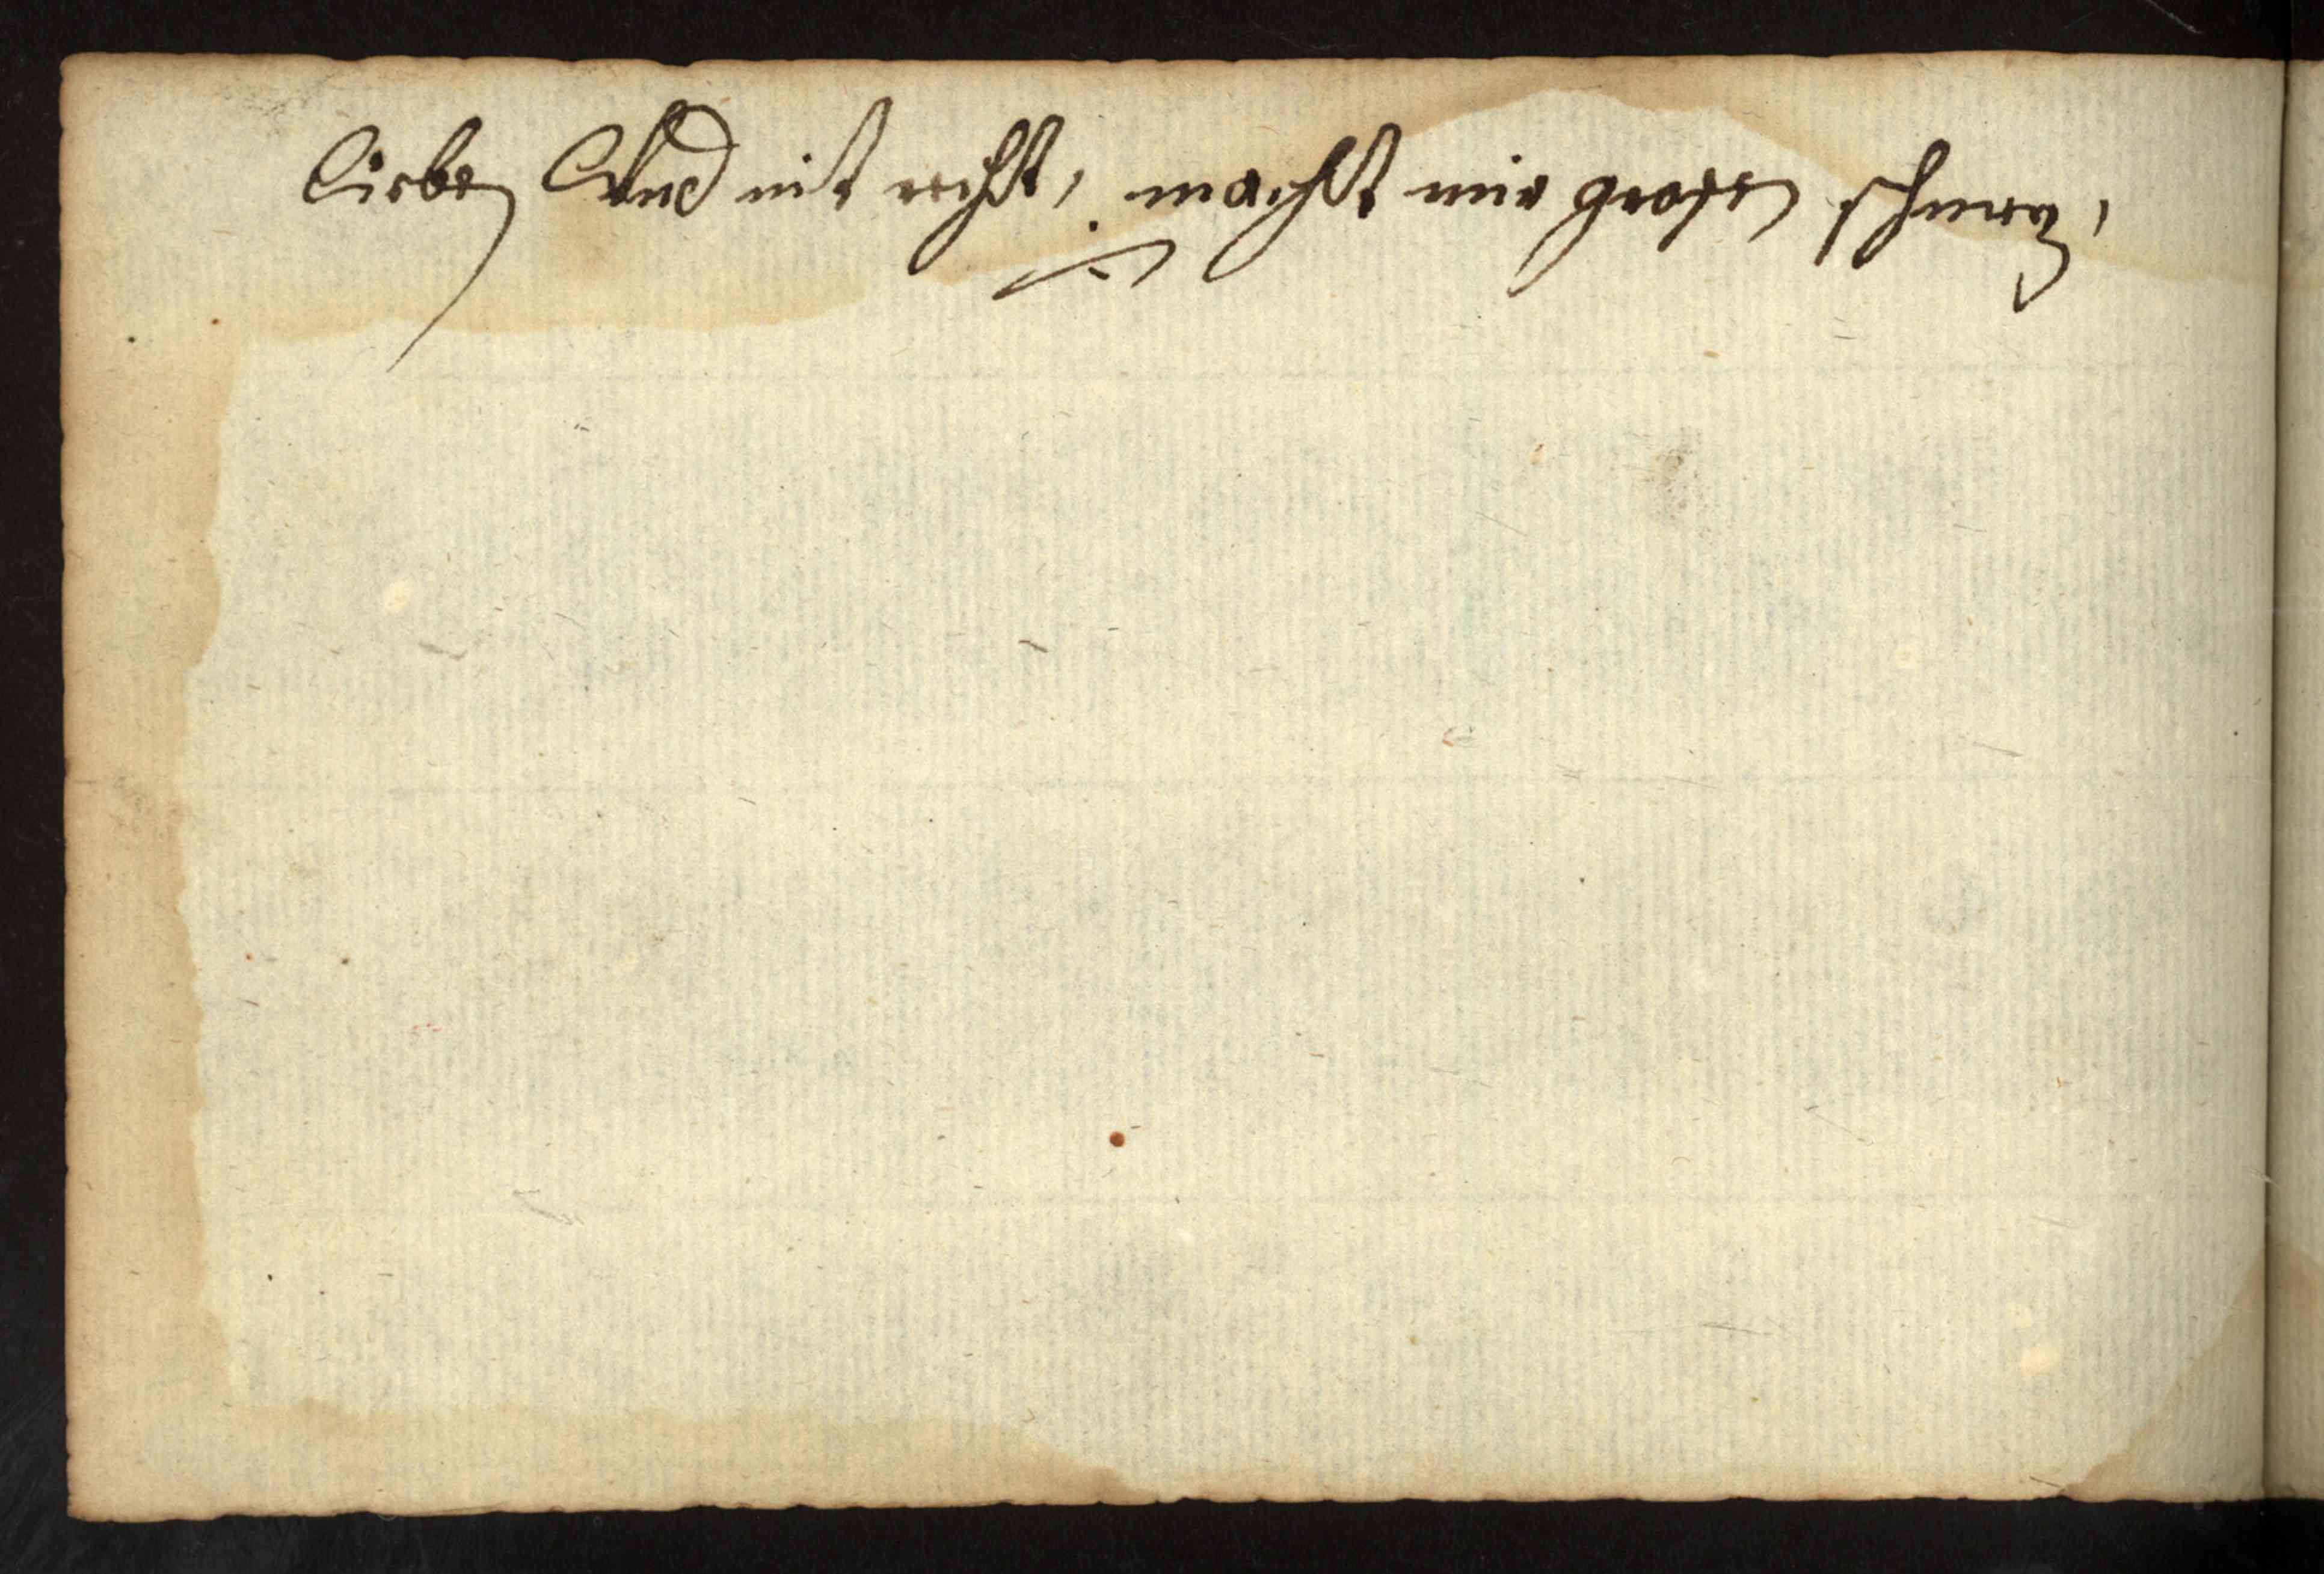 Lieben Vnd nit recht, macht mir grosen schmerz,